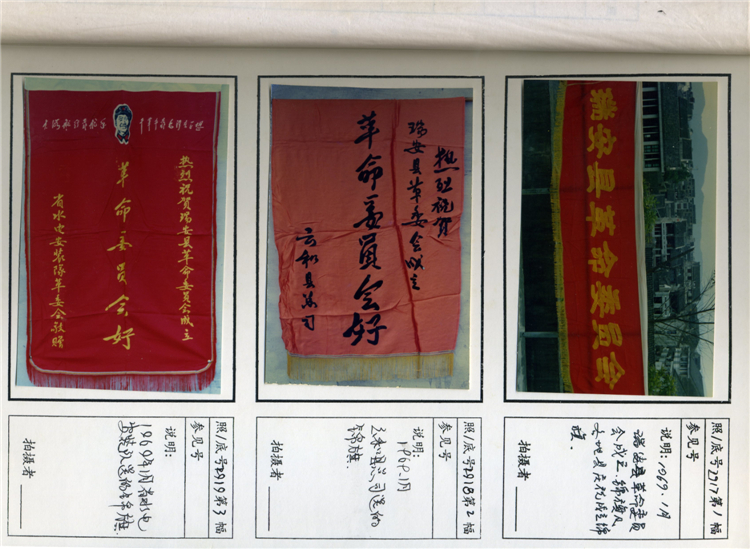 瑞安县革命委员会
照/底号2917第1幅
参见号
说明: 1969.1月
瑞安县革命委员
会成立锦旗及
拍摄者
热烈祝贺
瑞安县革委会成立
革命委员会好
云和县总司
照/底号2918第2幅
参见号
说明:
1969.1月
云和县总司送的
锦旗.
拍摄者
热烈祝贺瑞安县革命委员会成立
革命委員会好
省水电安装队革委会敬赠
照/底号2919第3幅
参见号
说明:
1969年1月省水电
安装队送的
拍摄者